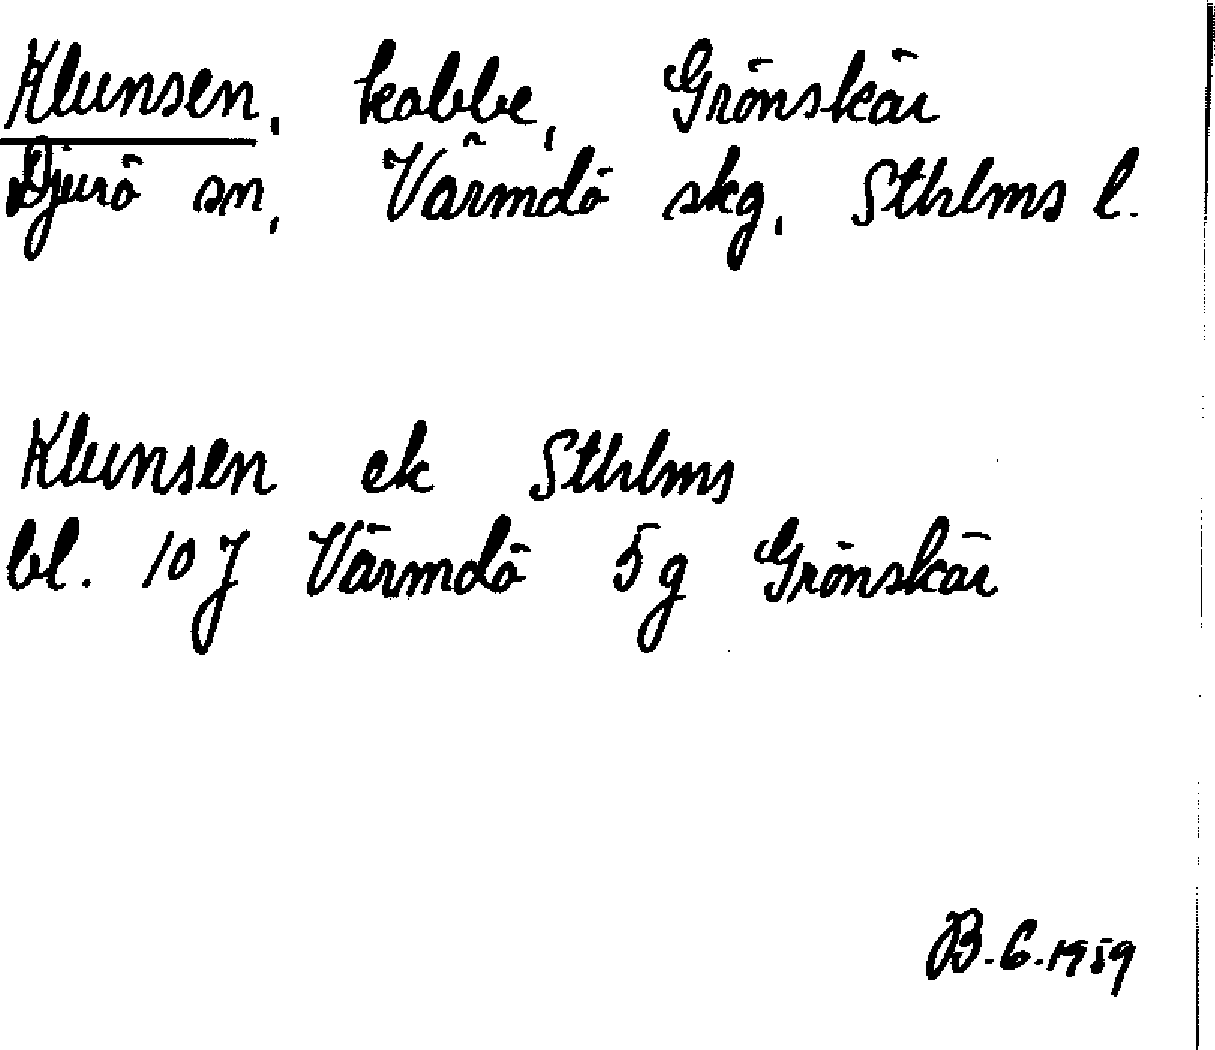 Klunsen, kobbe, Grönskär
Djurö sn, Värmdö skg, Sthlms l.
Klunsen ek Sthlms
bl. 10 J Värmdö 5 g Grönskär
B. G. 1959